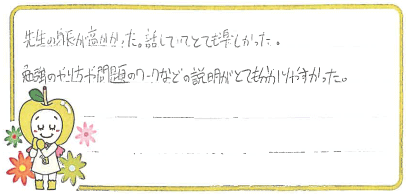 先生の身長が高かった。話していてとても楽しかった。
勉強のやり方や問題のワークなどの説明がとても分かりやすかった。